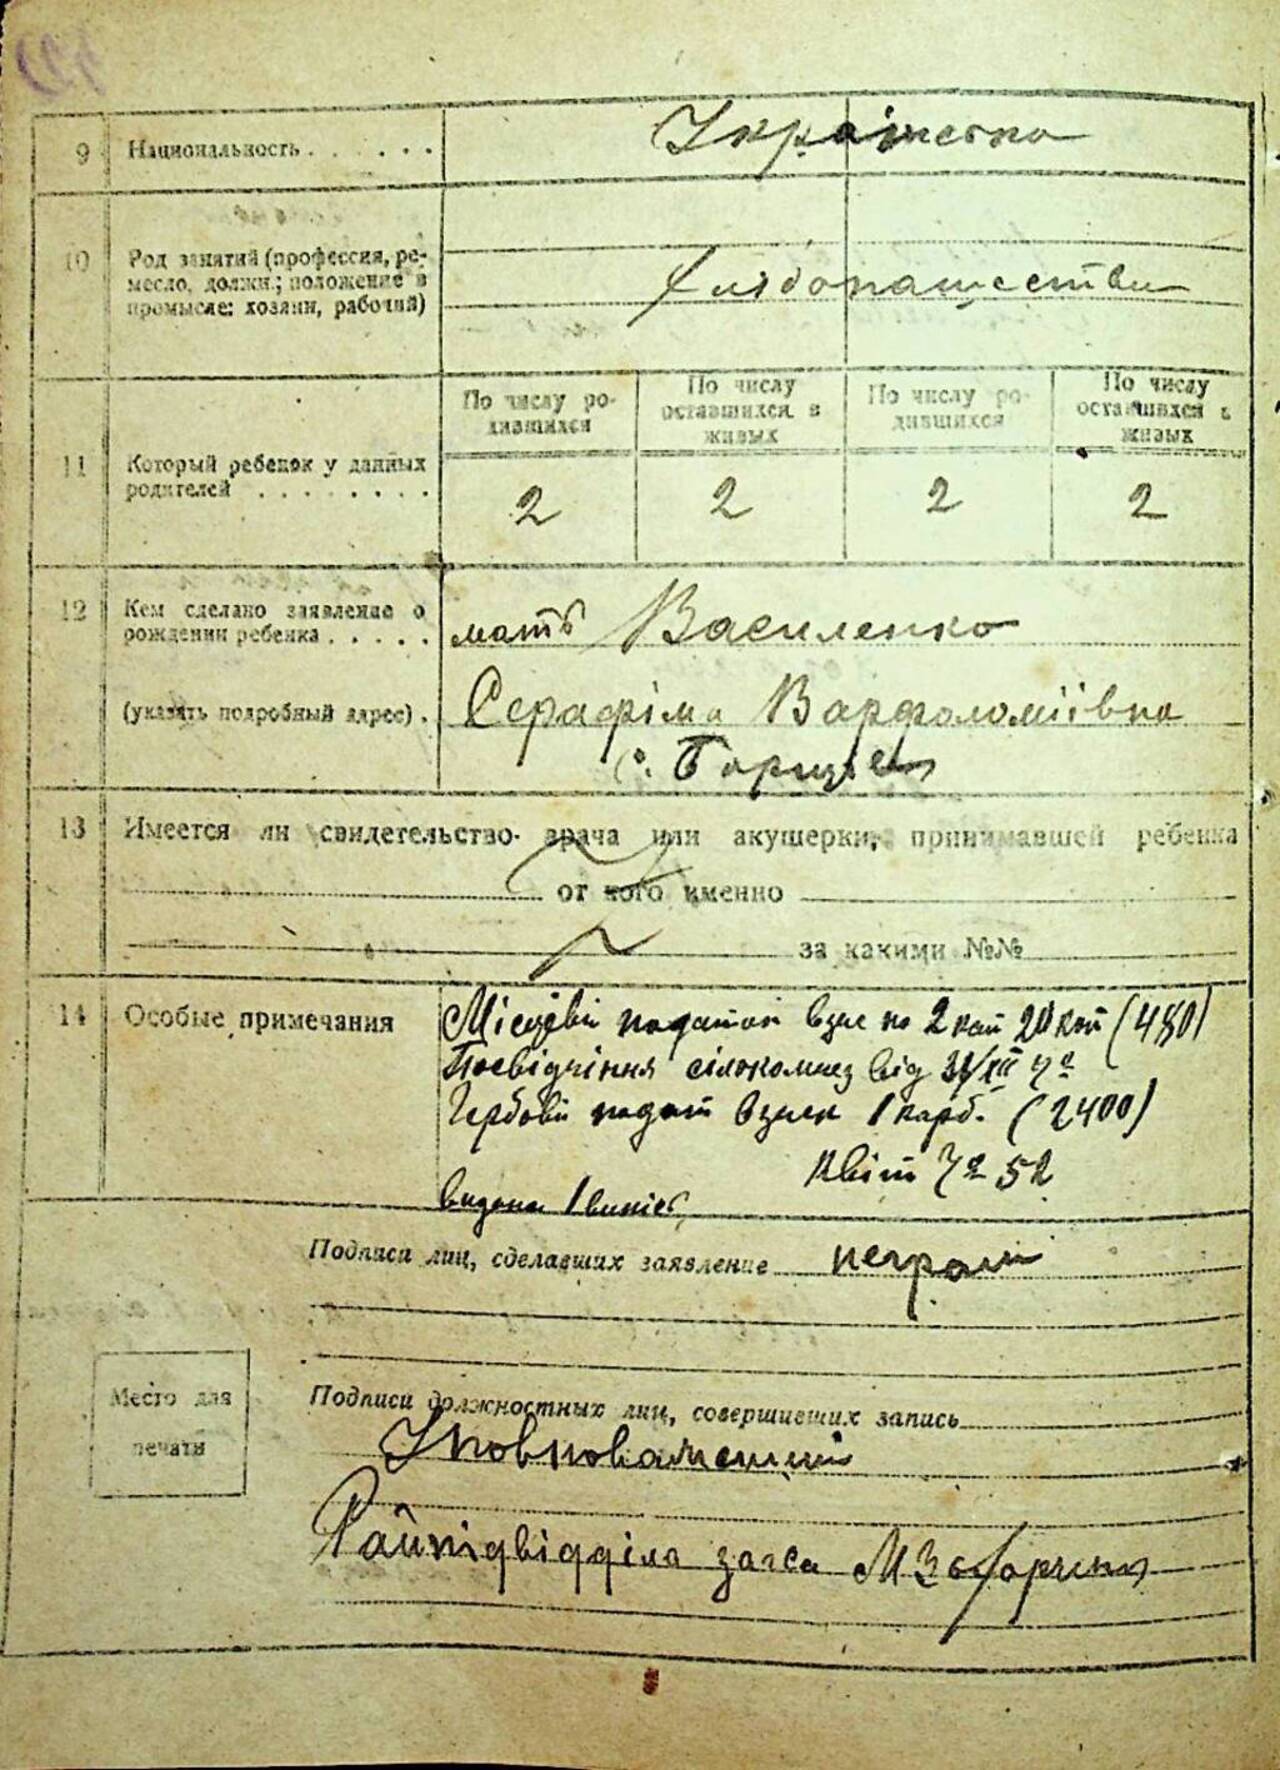 9 Национальность . . . . . .
Українська
10 Род занятий (профессия, ре-
месло, должн.; положение в
промысле: хозяин, рабочий)
Хлібопашество
По числу ро-
дившихся
По числу
оставшихся в
живых
По числу ро-
дившихся
По числу
оставшихся в
живых
11 Который ребенок у данных
родителей . . . . . . . .
2 2 2 2
12 Кем сделано заявление о
рождении ребенка . . . . .
мать Василенко
(указать подробный адрес) .
Серафіма Варфоломіївна
с. Борщів
13 Имеется ли свидетельство врача или акушерки, принимавшей ребенка
от кого именно
за какими №№
14 Особые примечания
Місцевий податок 2 20 коп (480)
Посвідчіння від
Гербовий подат 1 карб. (2400)
Квіт № 52
видана 1 випись
Подписи лиц, сделавших заявление неграм
Подписи должностных лиц, совершивших запись
Уповноважений
Райпідвідділа загса
Место для
печати